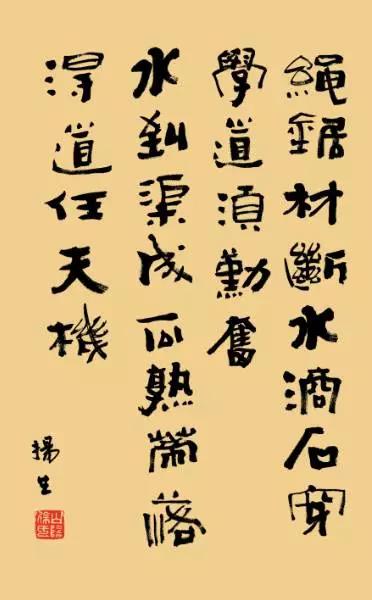 繩鋸材斷水滴石穿
學道須勤奮
水到渠成瓜熟蒂落
得道任天機
揚生